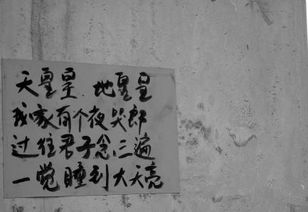 天皇皇 地皇皇
我家有个夜哭郎
过往君子念三遍
一觉睡到大天亮